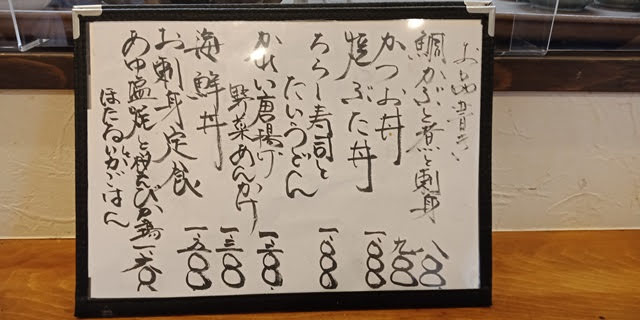 お品書き
鯛かぶと煮と刺身 八〇〇
かつお丼 九〇〇
焼ぶた丼 一、〇〇〇
ちらし寿司と
たいうどん 一、〇〇〇
かれい唐揚げ
野菜あんかけ 一、二〇〇
海鮮丼 一、三〇〇
お刺身定食 一、五〇〇
あゆ塩焼と桜えび 一、六〇〇
ほたるいかごはん